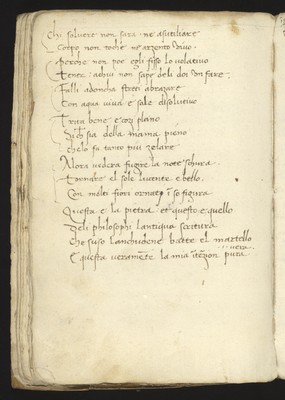 Chi solvere non sara ne asutiliare
Corpo non tochi ne argento vivo
Perche non poe egli fisso lo volativo
Tener: achui non sape deli doi un fare
Falli adoncha streti abrazare
Con aqua viva e sale disolutivo
Trita bene e piano
sia della mama pieno
chelo fa tanto piu zelare
Alora vedera fugire la note schura
Etornare el sole lucente e bello
Con molti fiori ornato i so figura
Questa e la pietra et questo e quello
Deli philosophi lantiqua scritura
Che suso lanchudene batte el martello
E questa veramẽte la mia ĩtẽzion pura
vera